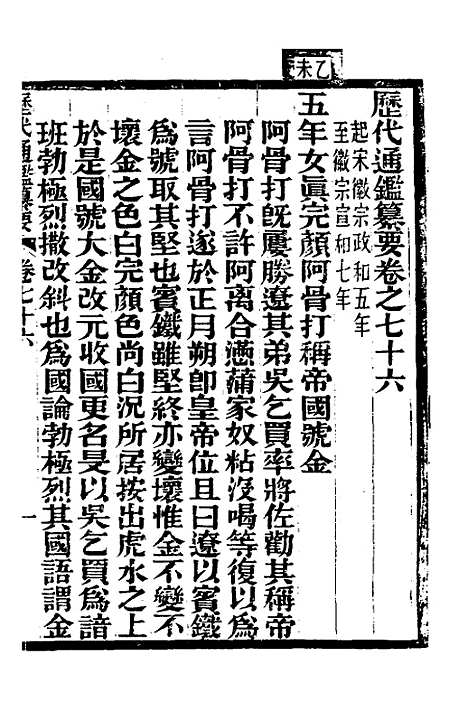 乙未
歷代通鑑纂要卷之七十六
起宋徽宗政和五年
至徽宗宣和七年
五年女眞完顏阿骨打稱帝國號金
阿骨打旣屢勝遼其弟吳乞買率將佐勸其稱帝
阿骨打不許阿离合懣蒲家奴粘没喝等復以爲
言阿骨打遂於正月朔卽皇帝位且曰遼以賓鐵
爲號取其堅也賓鐵雖堅終亦變壞惟金不變不
壞金之色白完顏色尚白況所居按出虎水之上
於是國號大金改元收國更名旻以吳乞買爲諳
班勃極烈撒改斜也爲國論勃極烈其國語謂金
歷代通鑑纂要
卷七十六
一